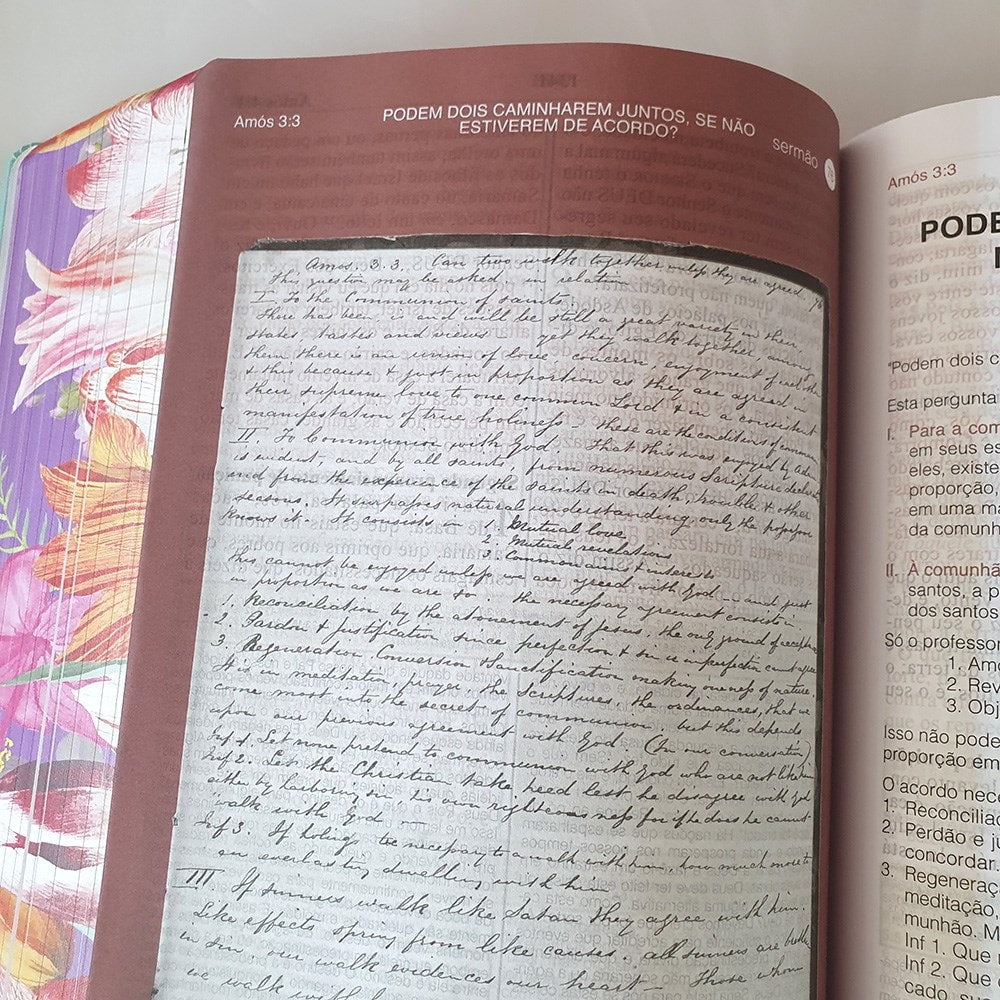 Amós 3:3
PODEM DOIS CAMINHAREM JUNTOS, SE NÃO
ESTIVEREM DE ACORDO?
sermão 76
Amos. 3.3. Can two walk together unless they are agreed. 76
This question may be asked, in relation
I. To the Communion of saints.
There has been, is and will be still a great variety in their
states, tastes and views — yet they walk together, among
them there is an union of love, concern, enjoyment of each other
& this because & just in proportion as they are agreed in
their supreme love to one common Lord & in a consistent
manifestation of true holiness — these are the conditions of
II. To Communion with God. That this was enjoyed by
is evident, and by all saints, from numerous Scripture
and from the experience of the saints in death, trouble & other
seasons. It surpasses natural understanding, only the professor
knows it. It consists in 1. Mutual love
2. Mutual revelations
3. Common aims & interests
This cannot be enjoyed unless we are agreed with God — and just
in proportion as we are so — the necessary agreement consists in
1. Reconciliation by the atonement of Jesus, the only ground of
2. Pardon & Justification since perfection & sin or imperfection cannot agree
3. Regeneration Conversion Sanctification making oneness of nature.
It is in meditation, prayer, the scriptures, the ordinances, that we
come most into the secret of communion, but this depends
upon our previous agreement with God (In our conversation)
Inf 1. Let none pretend to communion with God who are not like him
Inf 2. Let the Christian take heed lest he disagree with God
either by harboring sin or his own righteousness for if he does he cannot
walk with God —
Inf 3. If holiness be necessary to a walk with him, how much more to
an everlasting dwelling with him
III If sinners walk like Satan they agree with him.
Like effects spring from like causes, all sinners are
in sin our walk evidences our heart — Those whom
we walk with
Amós 3:3
PODE
"Podem dois c
Esta pergunta
I. Para a com
em seus es
eles, existe
proporção,
em uma ma
da comunh
II. À comunhã
santos, a p
dos santos
Só o professo
1. Amo
2. Rev
3. Obj
Isso não pode
proporção em
O acordo nece
1. Reconciliaç
2. Perdão e ju
concordar.
3. Regeneraç
meditação
munhão. M
Inf 1. Que n
Inf 2. Que o